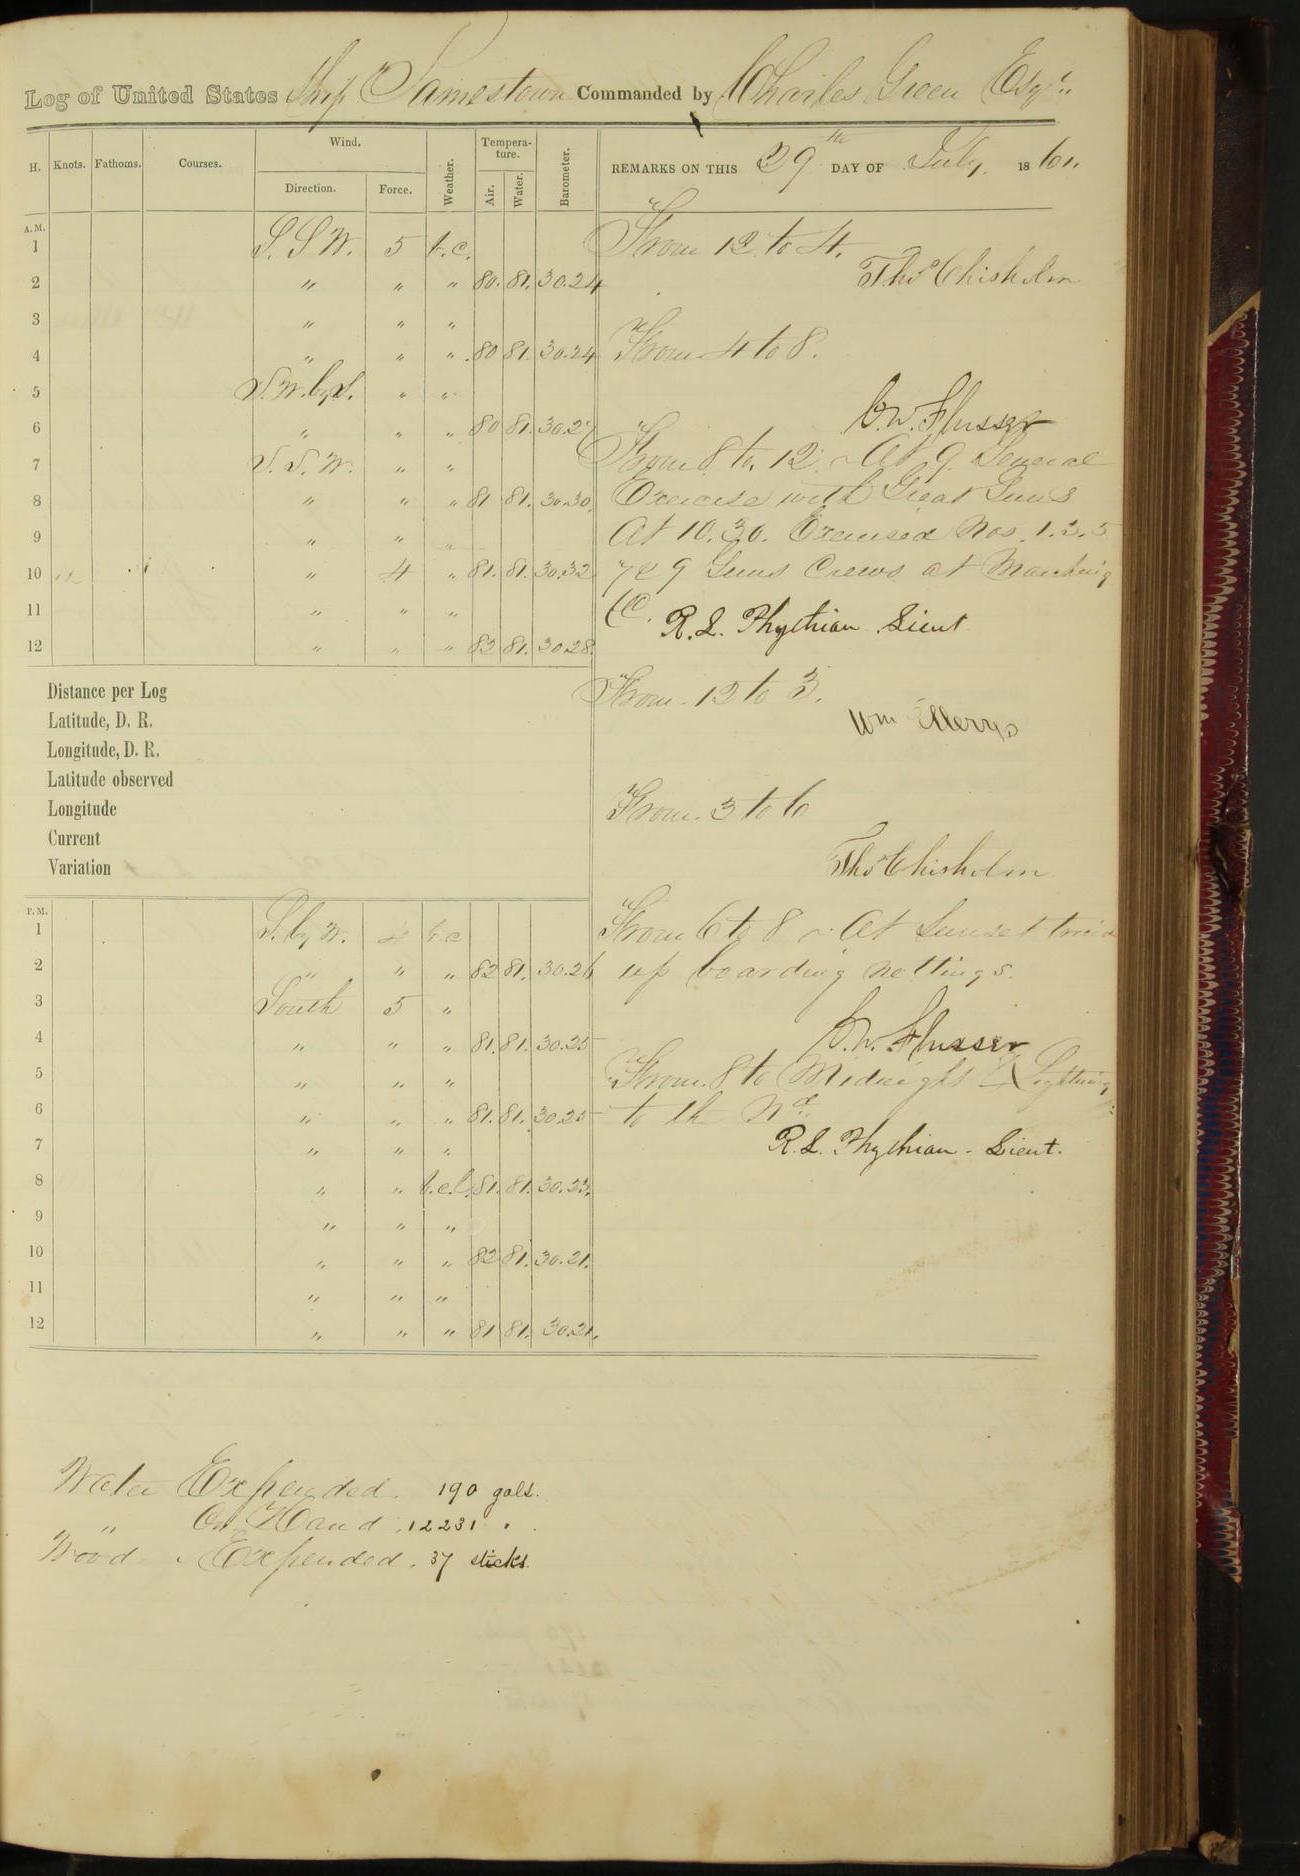 Log of United States Ship Jamestown Commanded by Charles Green Esqr.
H. Knots. Fathoms. Courses. Wind. Direction. Force. Weather. Tempera-ture. Air. Water. Barometer. REMARKS ON THIS 29th DAY OF July 1861.
A.M.
1 S.S.W. 5 b.c.
2 " " " 80. 81. 30.24
3 " " "
4 " " " 80 81. 30.24
5 S.W. by S. " "
6 " " " 80 81. 30.27
7 S.S.W. " "
8 " " " 81 81. 30.30.
9 " " "
10 " 4 " 81. 81. 30.32
11 " " "
12 " " " 82 81. 30.28.
From 12 to 4.
Thos Chisholm
From 4 to 8.
C.W. Flusser
From 8 to 12. ~ At 9. General
Exercise with Great Guns
At 10.30. Exercised Nos. 1.3.5
7 & 9 Guns Crews at Manning
&c. R. L. Phythian Lieut
Distance per Log
Latitude, D. R.
Longitude, D. R.
Latitude observed
Longitude
Current
Variation
From 12 to 3.
Wm Ellerys
From 3 to 6
Thos Chisholm
P.M.
1 S. by W. 4 b.c
2 " " " 82 81. 30.26
3 South 5 "
4 " " " 81. 81. 30.25
5 " " "
6 " " " 81. 81. 30.25
7 " " "
8 " " b.c.l. 81. 81. 30.23.
9 " " "
10 " " " 82 81. 30.21.
11 " " "
12 " " " 81 81. 30.21.
From 6 to 8 ~ At Sunset triced
up boarding nettings.
C.W. Flusser
From 8 to Midnight Lightning
to the Nd.
R. L. Phythian - Lieut.
Water Expended. 190 galls.
" On Hand. 12231 "
Wood Expended. 37 sticks.